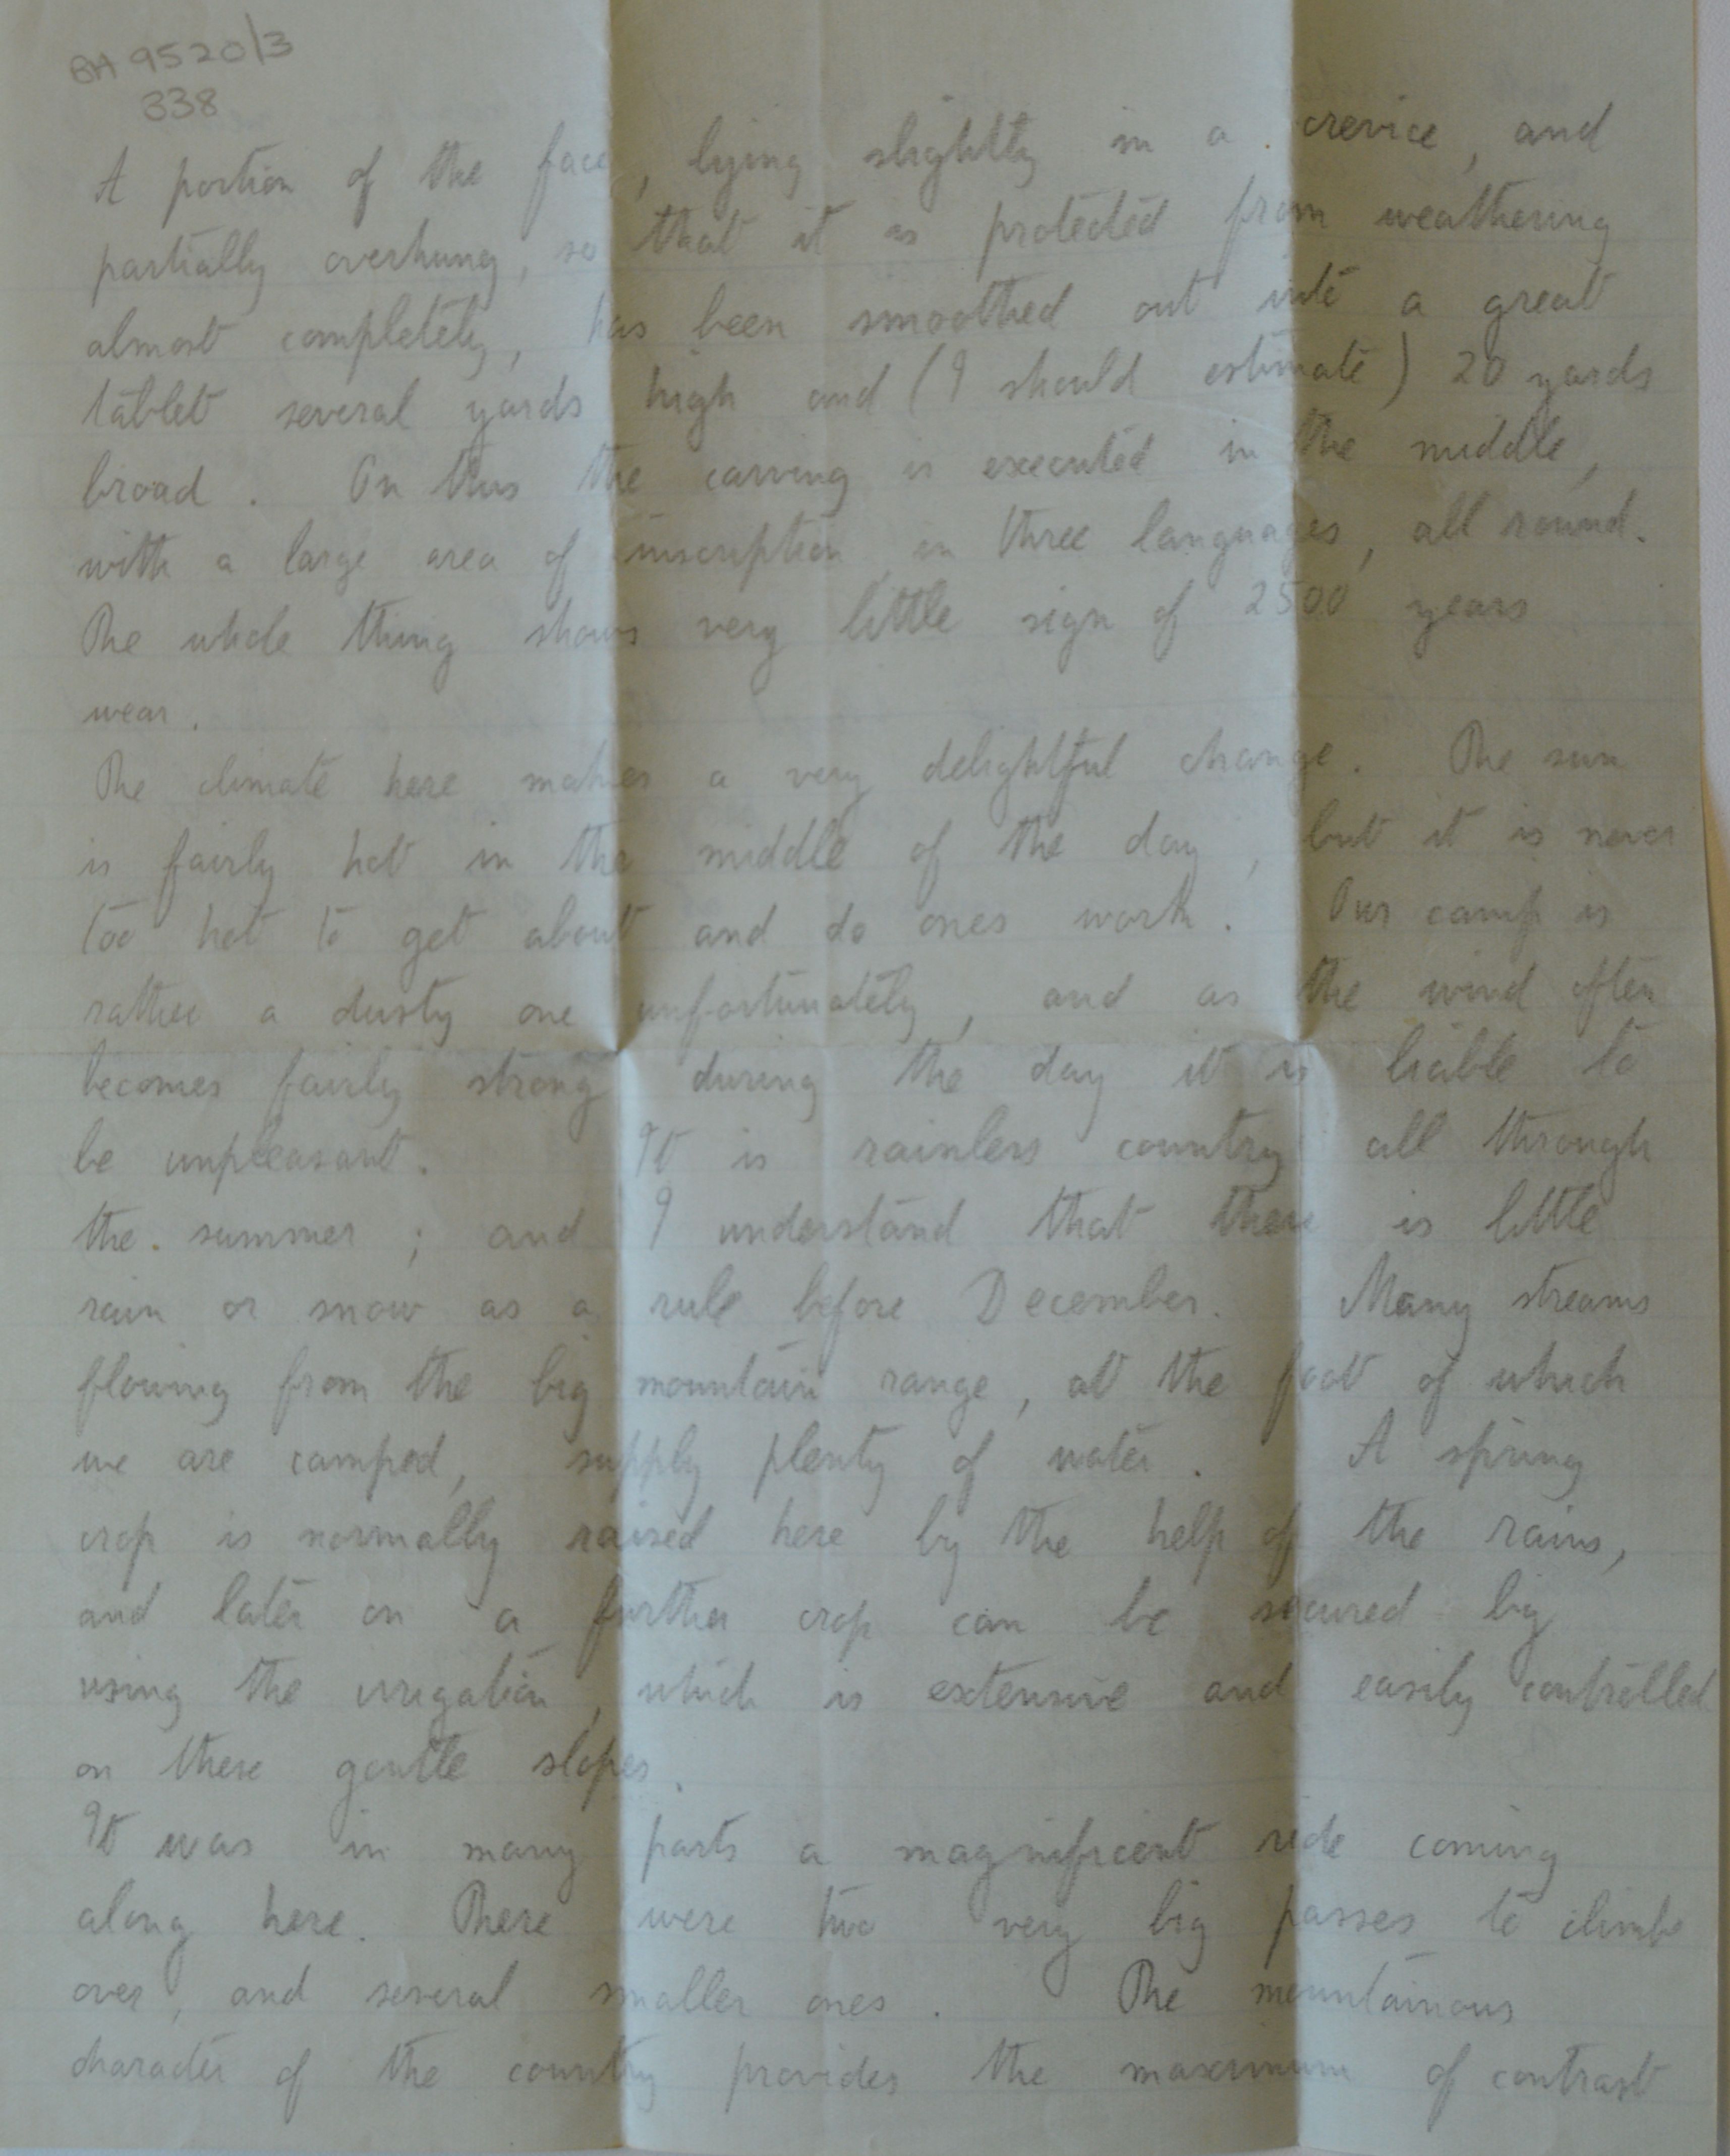 BH 9520/3
338
A portion of the face, lying slightly in a crevice, and
partially overhung, so that it is protected from weathering
almost completely, has been smoothed out into a great
tablet several yards high and (I should estimate) 20 yards
broad. On this the carving is executed in the middle,
with a large area of inscription in three languages, all round.
The whole thing shows very little sign of 2500 years
wear.
The climate here makes a very delightful change. The sun
is fairly hot in the middle of the day, but it is never
too hot to get about and do ones work. Our camp is
rather a dusty one unfortunately, and as the wind often
becomes fairly strong during the day it is liable to
be unpleasant. It is rainless country all through
the summer; and I understand that there is little
rain or snow as a rule before December. Many streams
flowing from the big mountain range, at the foot of which
we are camped, supply plenty of water. A spring
crop is normally raised here by the help of the rains,
and later on a further crop can be secured by
using the irrigation, which is extensive and easily controlled
on these gentle slopes.
It was in many parts a magnificent ride coming
along here. There were two very big passes to climb
over, and several smaller ones. The mountainous
character of the country provides the maximum of contrast